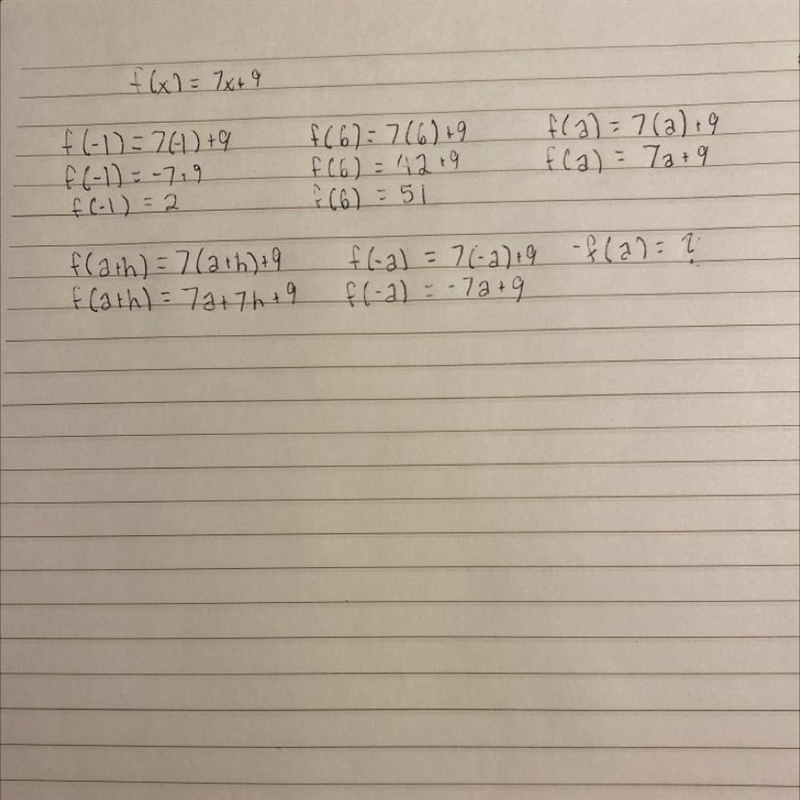 f(x) = 7x+9
f(-1) = 7(-1)+9
f(-1) = -7+9
f(-1) = 2
f(6) = 7(6)+9
f(6) = 42+9
f(6) = 51
f(a) = 7(a)+9
f(a) = 7a+9
f(a+h) = 7(a+h)+9
f(a+h) = 7a+7h+9
f(-a) = 7(-a)+9
f(-a) = -7a+9
-f(a) = ?